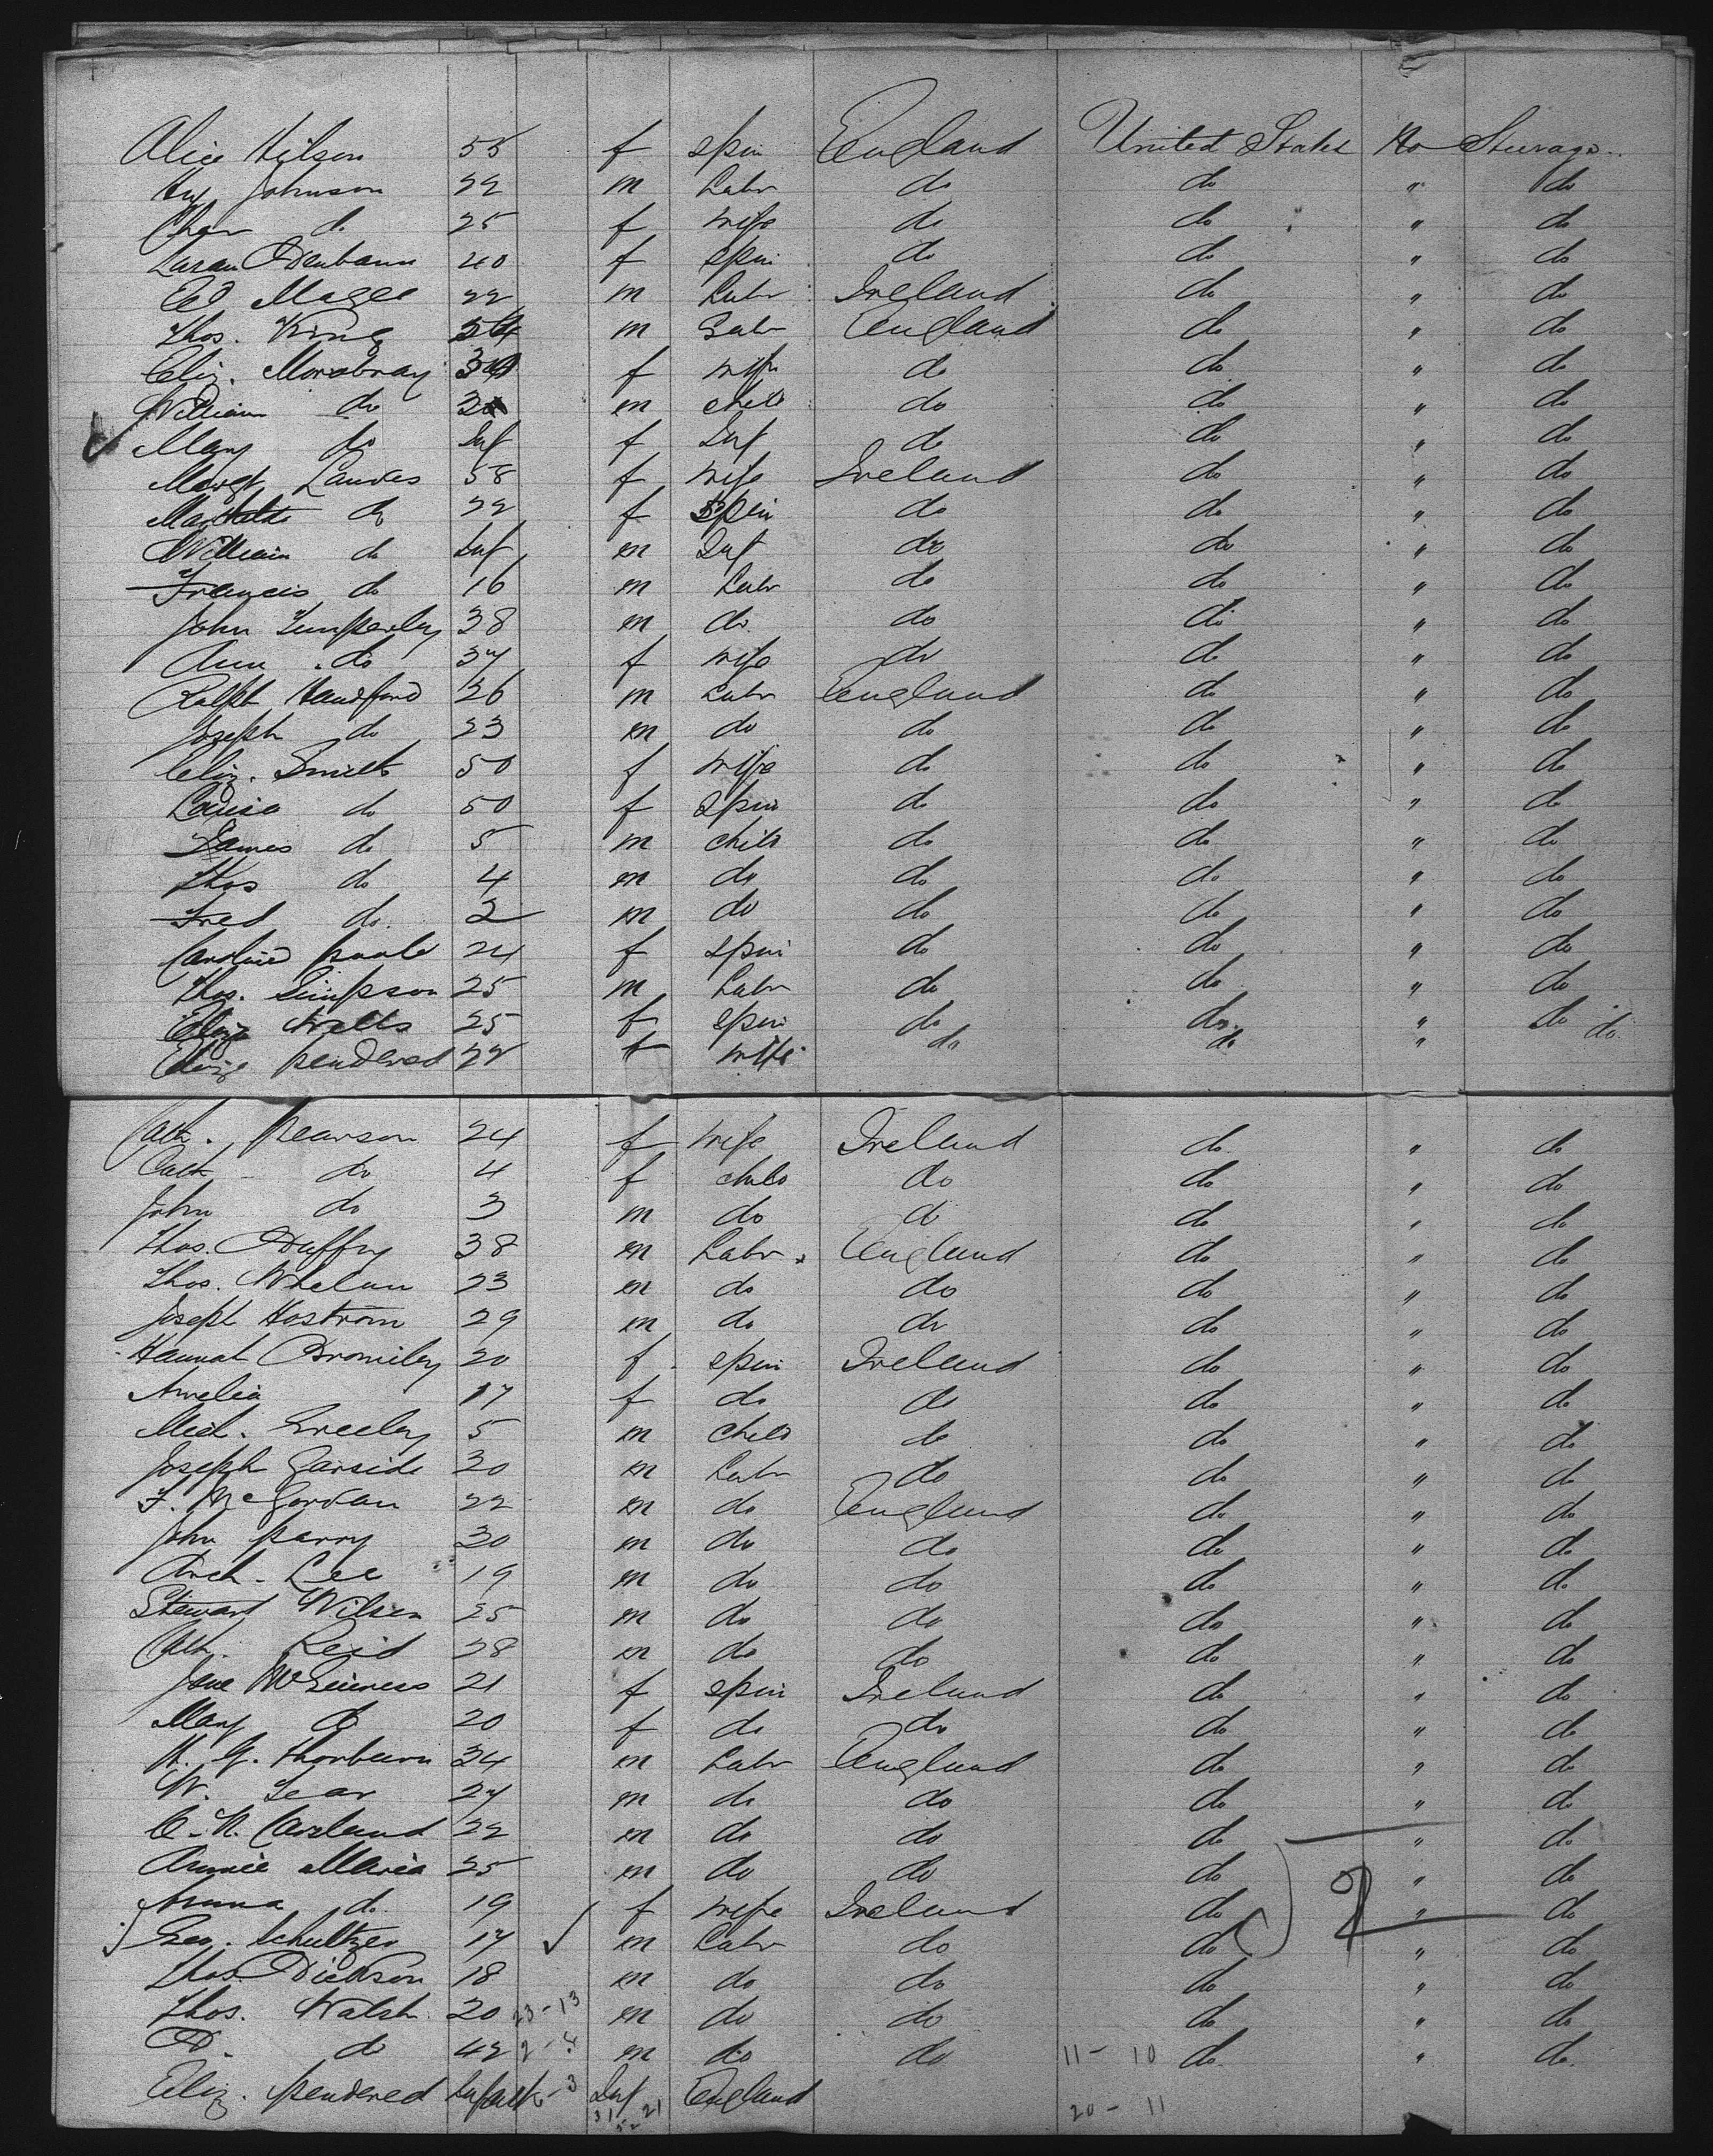 Alice Hilson 55 f spin England United States No Steerage
Hy Johnson 22 m Labr do do " do
Char do 25 f wife do do " do
40 f spin do do " do
Ed Magee 22 m Labr Ireland do " do
Thos. King m Labr England do " do
Eliz. Morobray f wife do do " do
William do m child do do " do
Mary do Inf f Inf do do " do
Margt Landes 58 f wife Ireland do " do
do 22 f spin do do " do
William do Inf m Inf do do " do
Francis do 16 m Labr do do " do
John Timperley 38 m do do do " do
Ann do 37 f wife do do " do
Ralph Handford 26 m Labr England do " do
Joseph do 23 m do do do " do
Eliz. Smith 50 f wife do do " do
Louisa do 50 f spin do do " do
James do 5 m child do do " do
Thos do 4 m do do do " do
Fred do 2 m do do do " do
Caroline Poole 24 f spin do do " do
Thos. Simpson 25 m Labr do do " do
Eliza Wells 25 f spin do do " do
Eliza Pendered 22 f wife do do " do
Cath. Pearson 24 f wife Ireland do " do
Cath do 4 f child do do " do
John do 3 m do do do " do
Thos. Duffy 38 m Labr England do " do
Thos. Whelan 23 m do do do " do
Joseph Hostrom 29 m do do do " do
Hannah Bromiley 20 f spin Ireland do " do
Amelia 17 f do do do " do
Mich. Greeley 5 m child do do " do
Joseph Garside 30 m Labr do do " do
F. McGordan 22 m do England do " do
John Parry 30 m do do do " do
Arch. Lee 19 m do do do " do
Stewart Wilson 25 m do do do " do
Cath. Reid 28 m do do do " do
Jane McGuiness 21 f spin Ireland do " do
Mary do 20 f do do do " do
H. G. Thorburn 34 m Labr England do " do
W. Lear 27 m do do do " do
C. H. Carland 22 m do do do " do
Annie Maria 25 m do do do " do
Anna do 19 f wife Ireland do " do
Geo. Schultzer 17 ✓ m Labr do do " do
Thos. Dickson 18 m do do do " do
Thos. Walsh 20 23-13 m do do do " do
D. do 42 m do do 11-10 do " do
Eliz. Pendered Infant Inf England 20-11